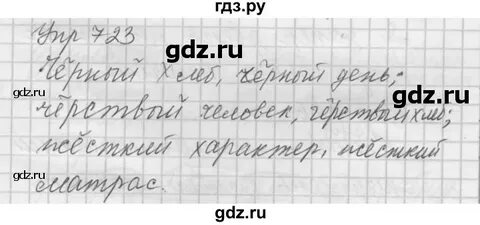 гдз.ру
Упр 723
gdz.ru
Чёрный хлеб, чёрный день;
gdz.ru
чёрствый человек, чёрствый хлеб;
жёсткий характер, жёсткий
матрас.
gdz.ru
gdz.ru